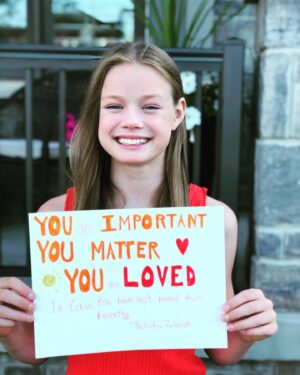 YOU are IMPORTANT
YOU MATTER
YOU are LOVED
In Case You have not heard that
Recently